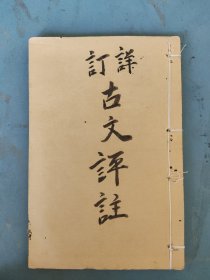 詳訂
古文評註